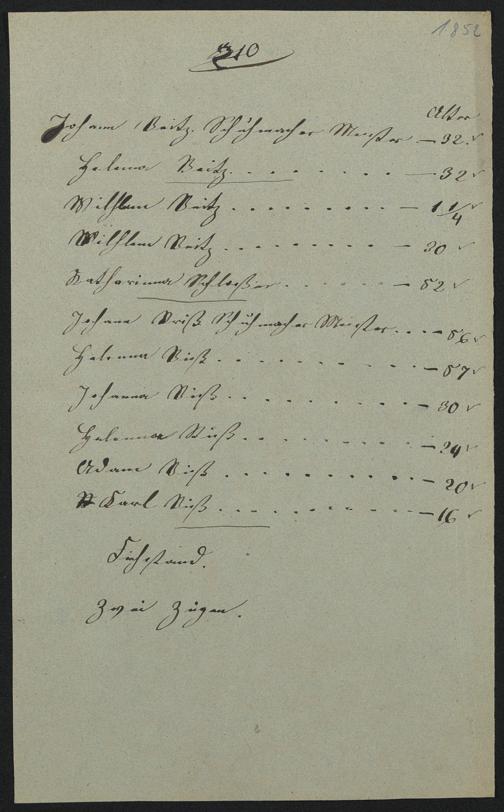 1852
210
Alter
Johann Veitz. Schuhmacher Meister — 32.
Helena Veitz. — 32
Wilhlem Veitz — 1 1/4
Wilhlem Veitz — 20
Katharinna Schlosser — 52
Johann Vriß Schuhmacher Meister — 56
Helenna Vieß — 57
Johanna Vieß — 30
Helenna Vieß — 24
Adam Vieß — 20
Karl Vieß — 16
Fiehstand.
Zwei Zigen.